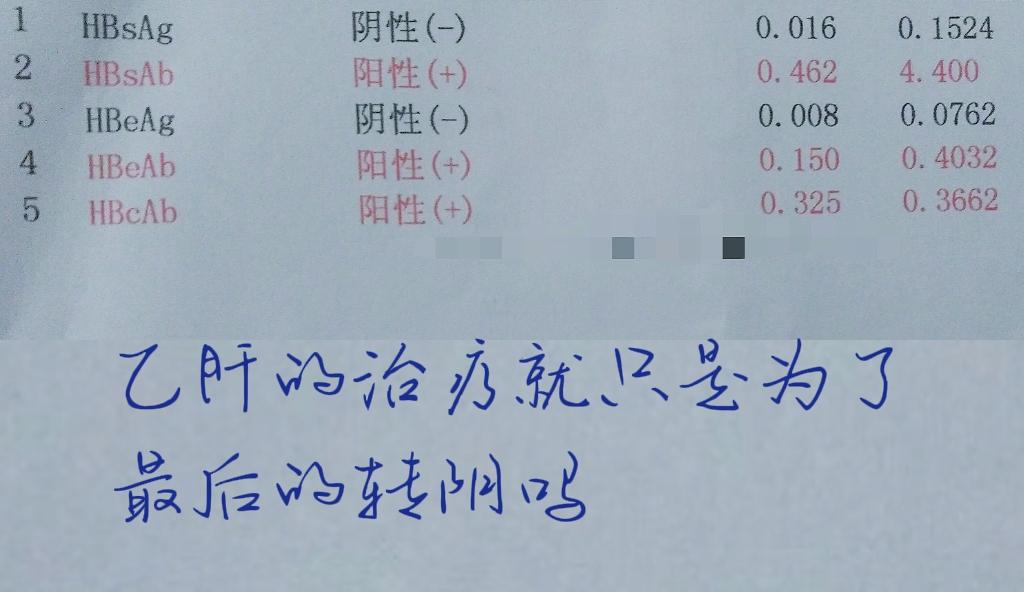 1 HBsAg 阴性(-) 0.016 0.1524
2 HBsAb 阳性(+) 0.462 4.400
3 HBeAg 阴性(-) 0.008 0.0762
4 HBeAb 阳性(+) 0.150 0.4032
5 HBcAb 阳性(+) 0.325 0.3662
乙肝的治疗就只是为了
最后的转阴吗